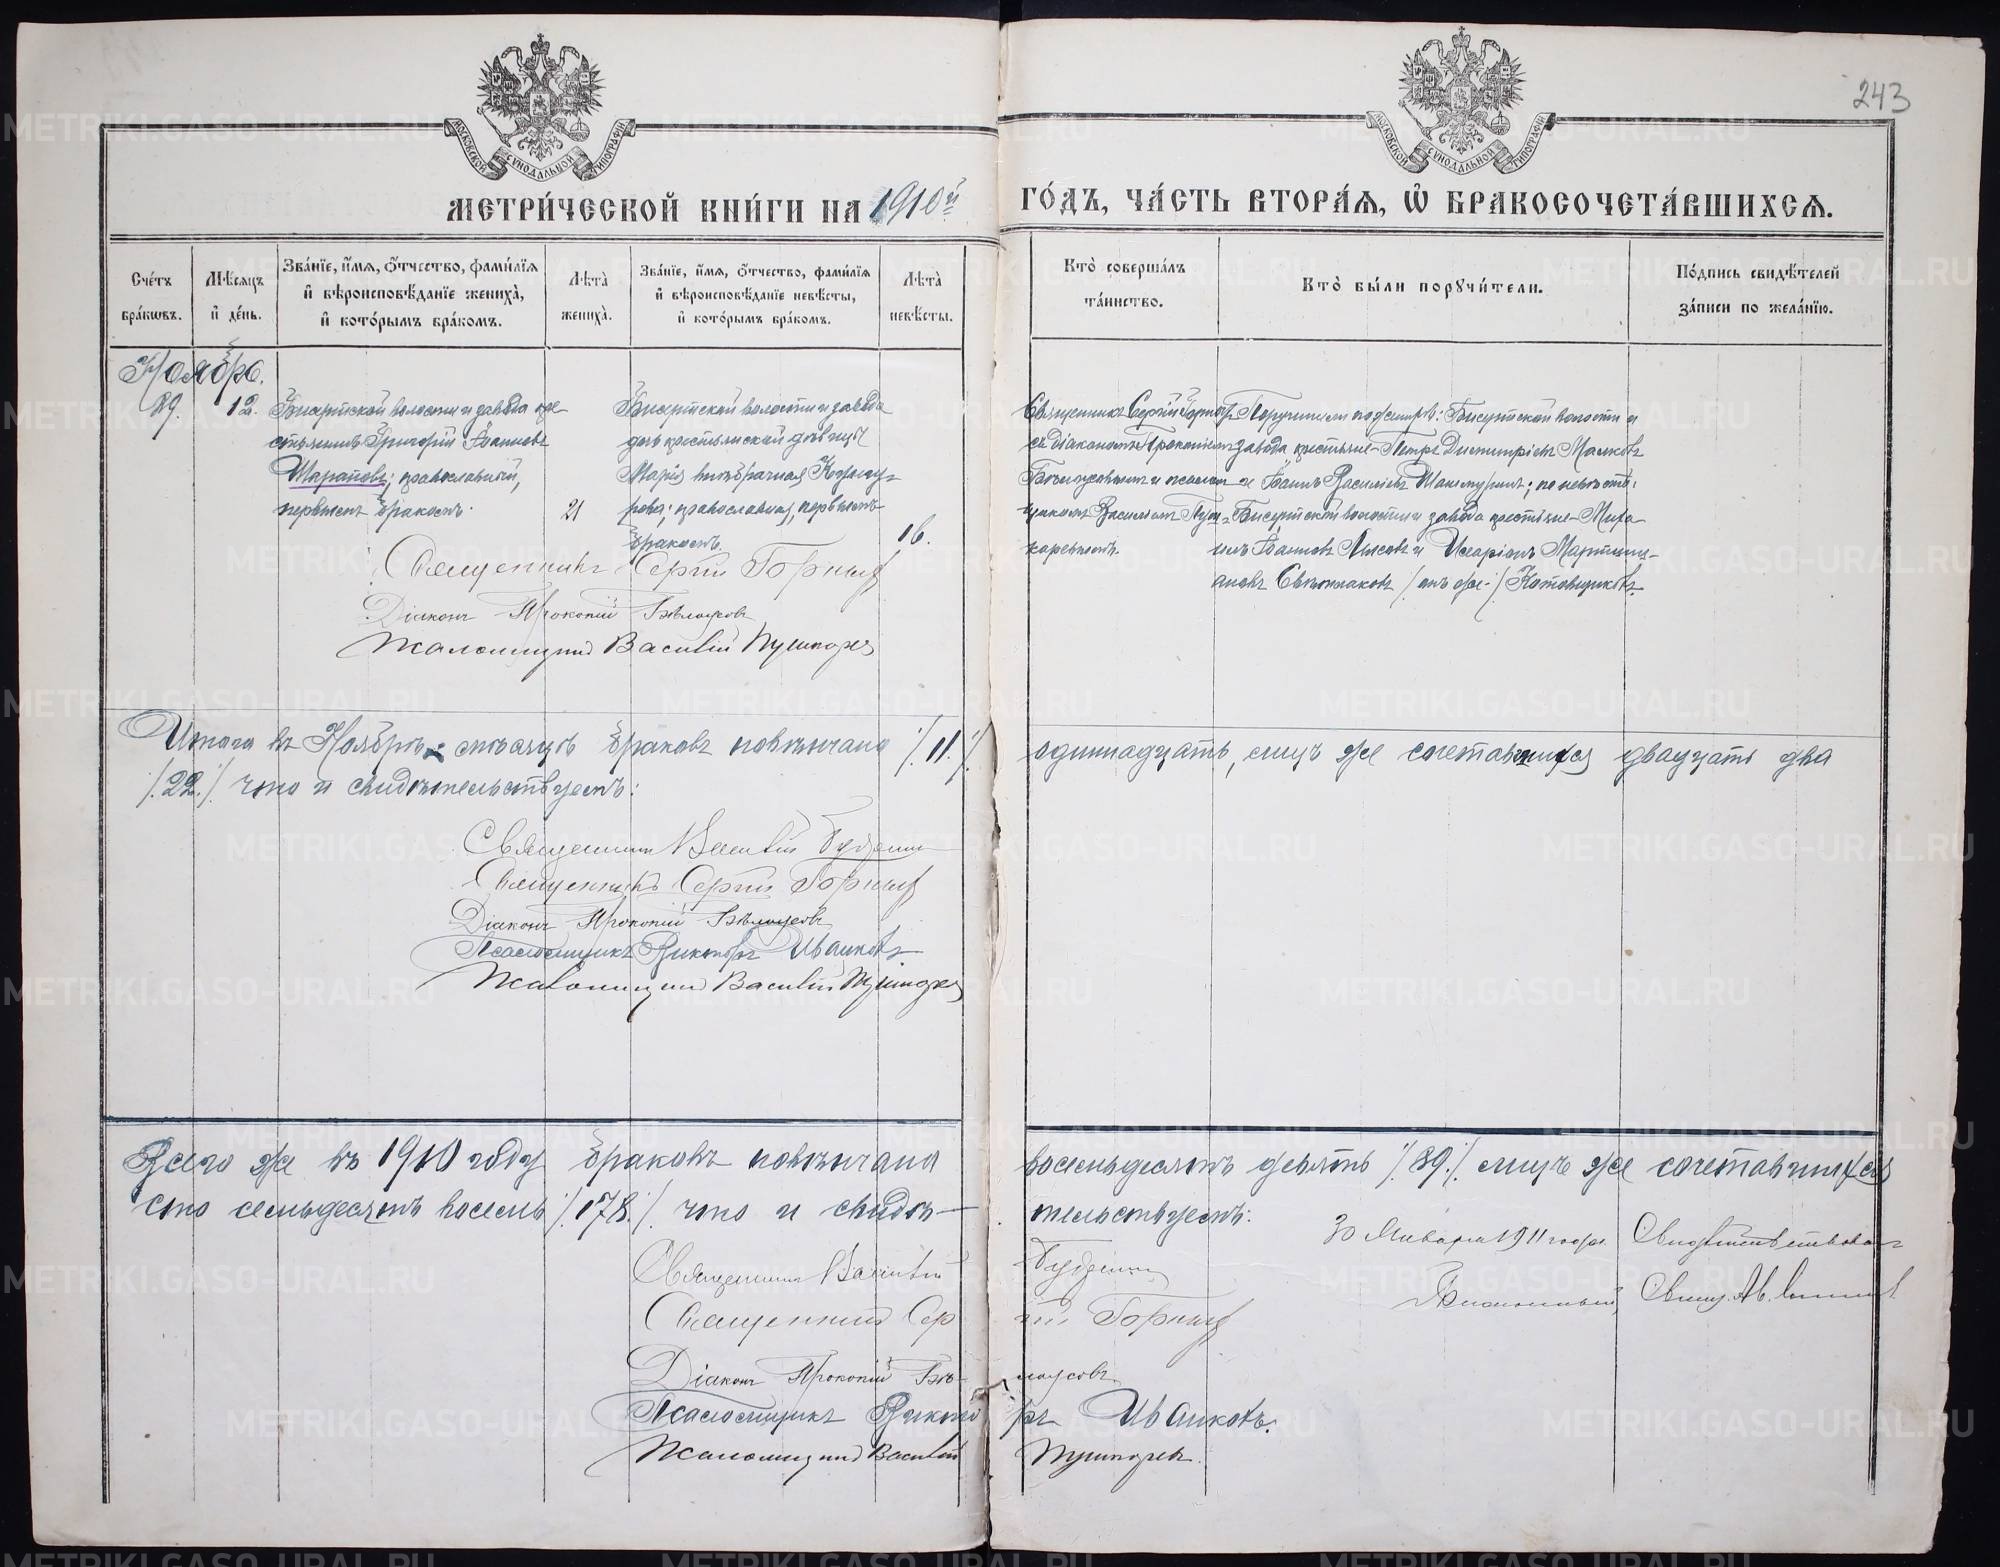 243
МОСКОВСКОЙ СѴНОДАЛЬНОЙ ТИПОГРАФІИ
МОСКОВСКОЙ СѴНОДАЛЬНОЙ ТИПОГРАФІИ
МЕТРИ́ЧЕСКОЙ КНИ́ГИ НА 1910й ГО́ДЪ, ЧА́СТЬ ВТОРА́Я, Ѿ БРАКОСОЧЕТА́ВШИХСЯ.
Сче́тъ бра́кωвъ.
Мѣ́сяцъ и де́нь.
Зва́нїе, и́мя, ѻ́тчество, фами́лїя и вѣроисповѣ́данїе жениха̀, и кото́рымъ бра́комъ.
Лѣ́та жениха̀.
Зва́нїе, и́мя, ѻ́тчество, фами́лїя и вѣроисповѣ́данїе невѣ́сты, и кото́рымъ бра́комъ.
Лѣ́та невѣ́сты.
Кто̀ соверша́лъ та́инство.
Кто̀ бы́ли порꙋчи́тели.
По́дпись свидѣ́телей за́писи по жела́нїю.
Ноябрь.
89. 12.
Бисертской волости и завода кре-
стьянинъ Григорій Іоанновъ
Шараповъ; православный,
первымъ бракомъ.
21
Бисертской волости и завода
дочь крестьянской дѣвицы
Марія внѣбрачная
православная, первымъ
бракомъ.
16.
Священникъ Сергій Горныхъ
съ діакономъ Прокопіемъ
Бѣлоусовымъ и псалом-
щикомъ Василіемъ Пуш-
каревымъ.
Поручители по женихѣ: Бисертской волости и
завода крестьяне Петръ Димитріевъ Малковъ
и Іоаннъ Василіевъ; по невѣстѣ:
Бисертской волости и завода крестьяне Миха-
илъ Іоанновъ Лысовъ и Иларіонъ Мартині-
ановъ /онъ же/
Священникъ Сергій Горныхъ
Діаконъ Прокопій Бѣлоусовъ
Псаломщикъ Василій Пушкаревъ
Итого въ Ноябрѣ мѣсяцѣ браковъ повѣнчано /11./ одиннадцать, лицъ же сочетавшихся двадцать два
/22./ что и свидѣтельствуемъ:
Священникъ Василій
Священникъ Сергій Горныхъ
Діаконъ Прокопій Бѣлоусовъ
Псаломщикъ Викторъ Ивановъ
Псаломщикъ Василій Пушкаревъ
Всего же въ 1910 году браковъ повѣнчано восемьдесятъ девять /89./ лицъ же сочетавшихся
сто семьдесятъ восемь /178./ что и свидѣтельствуемъ:
30 Января 1911 года. Свидѣтельствовалъ
Священникъ Василій
Священникъ Сергій Горныхъ
Діаконъ Прокопій Бѣлоусовъ
Псаломщикъ Викторъ Ивановъ.
Псаломщикъ Василій Пушкаревъ.
METRIKI.GASO-URAL.RU